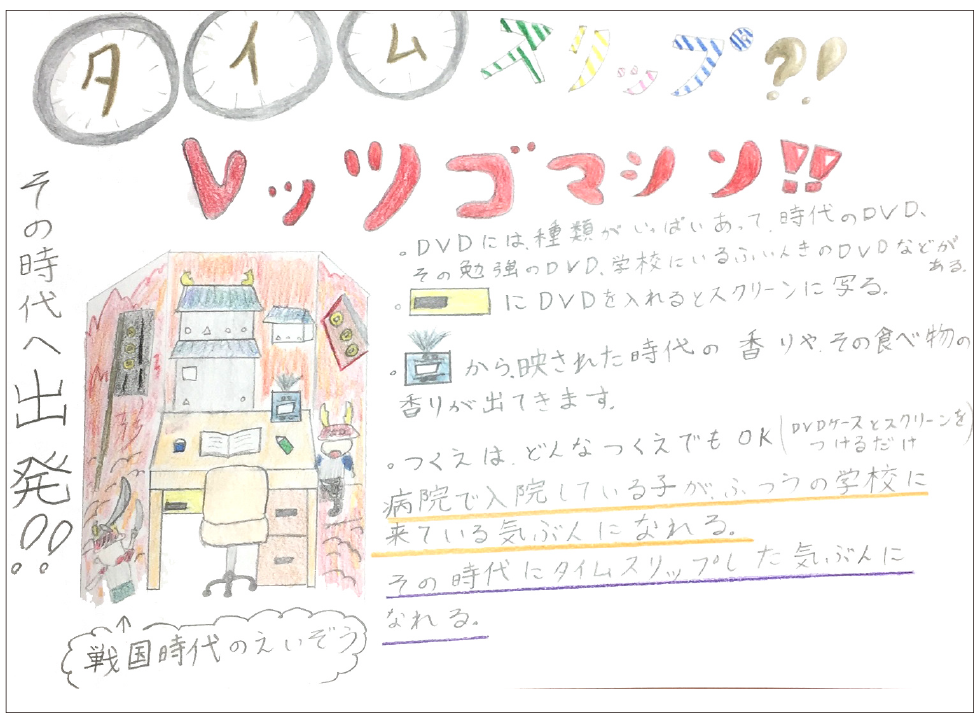 タイムスリップ?!
レッツゴマシン!!
その時代へ出発!!
。DVDには、種類がいっぱいあって、時代のDVD、
その勉強のDVD、学校にいるふいんきのDVDなどが
ある。
。にDVDを入れるとスクリーンに写る。
。から、映された時代の香りや、その食べ物の
香りが出てきます。
。つくえは、どんなつくえでもOK(DVDケースとスクリーンを
つけるだけ)
病院で入院している子が、ふつうの学校に
来ている気ぶんになれる。
その時代にタイムスリップした気ぶんに
なれる。
戦国時代のえいぞう